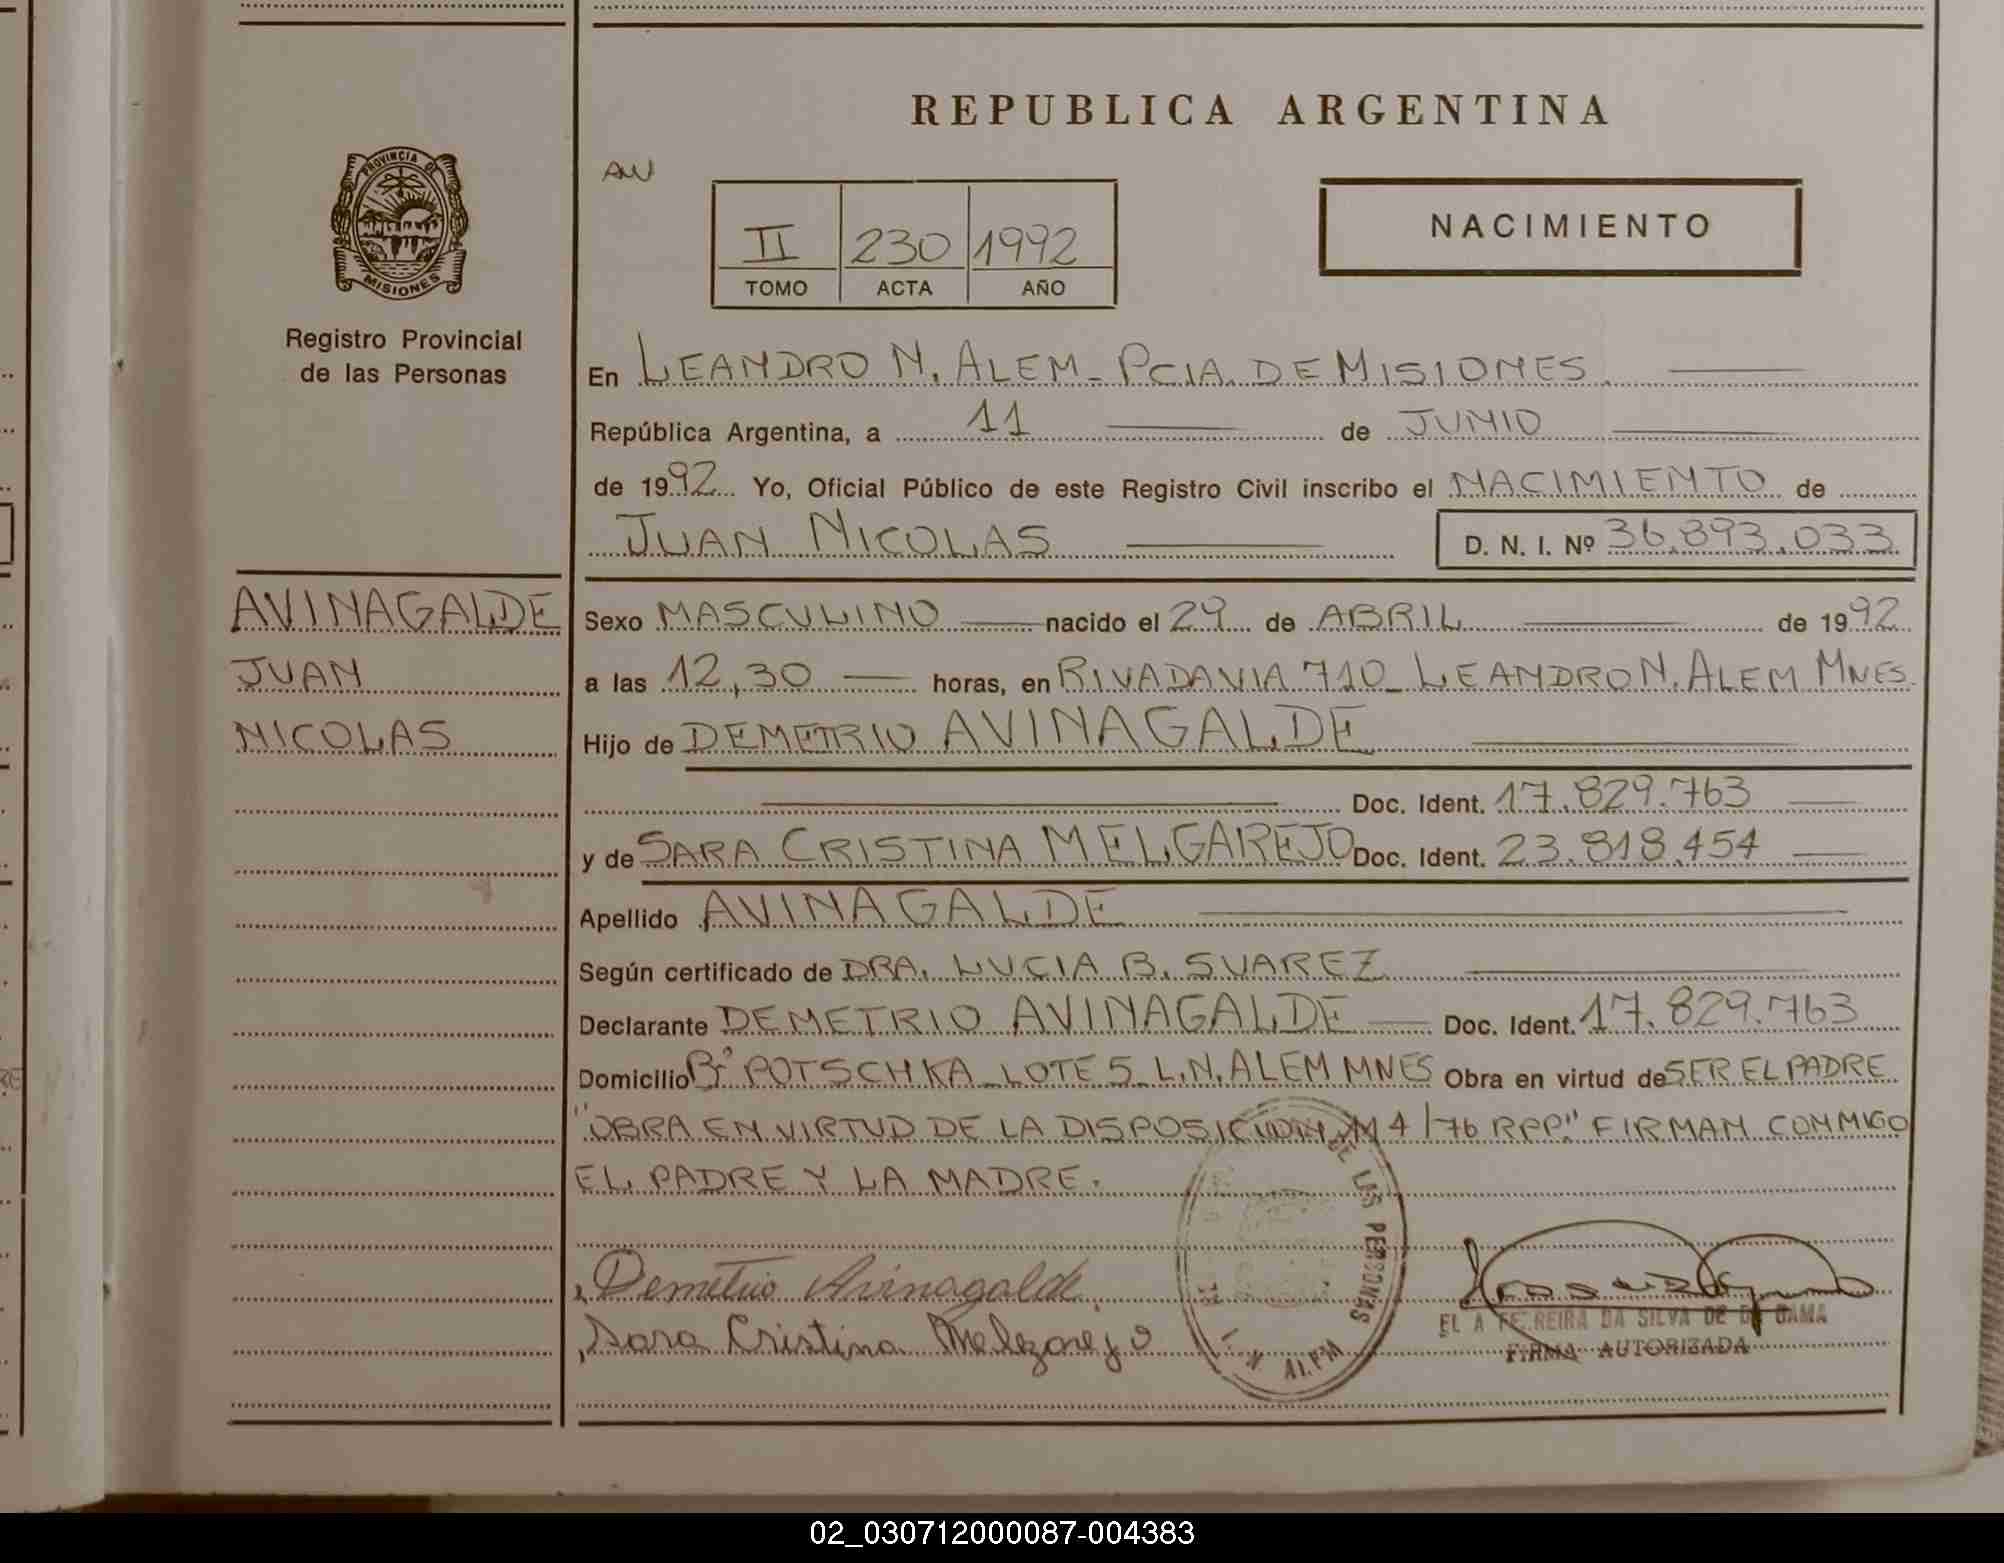 REPUBLICA ARGENTINA
PROVINCIA DE
MISIONES
Registro Provincial
de las Personas
II 230 1992
TOMO ACTA AÑO
NACIMIENTO
En LEANDRO N. ALEM - PCIA. DE MISIONES
República Argentina, a 11 de JUNIO
de 1992 Yo, Oficial Público de este Registro Civil inscribo el NACIMIENTO de
JUAN NICOLAS D. N. I. Nº 36.893.033
AVINAGALDE
JUAN
NICOLAS
Sexo MASCULINO nacido el 29 de ABRIL de 1992
a las 12,30 horas, en RIVADAVIA 710 - LEANDRO N. ALEM MNES.
Hijo de DEMETRIO AVINAGALDE
Doc. Ident. 17.829.763
y de SARA CRISTINA MELGAREJO Doc. Ident. 23.818.454
Apellido AVINAGALDE
Según certificado de DRA. LUCIA B. SUAREZ
Declarante DEMETRIO AVINAGALDE Doc. Ident. 17.829.763
Domicilio Bº POTSCHKA - LOTE 5 - L.N. ALEM MNES Obra en virtud de SER EL PADRE
"OBRA EN VIRTUD DE LA DISPOSICION Nº 4/76 RPP." FIRMAN CONMIGO
EL PADRE Y LA MADRE.
DE LAS PERSONAS
L. N. ALEM
Demetrio Avinagalde
Sara Cristina Melgarejo
FERREIRA DA SILVA DE DA GAMA
FIRMA AUTORIZADA
02_030712000087-004383